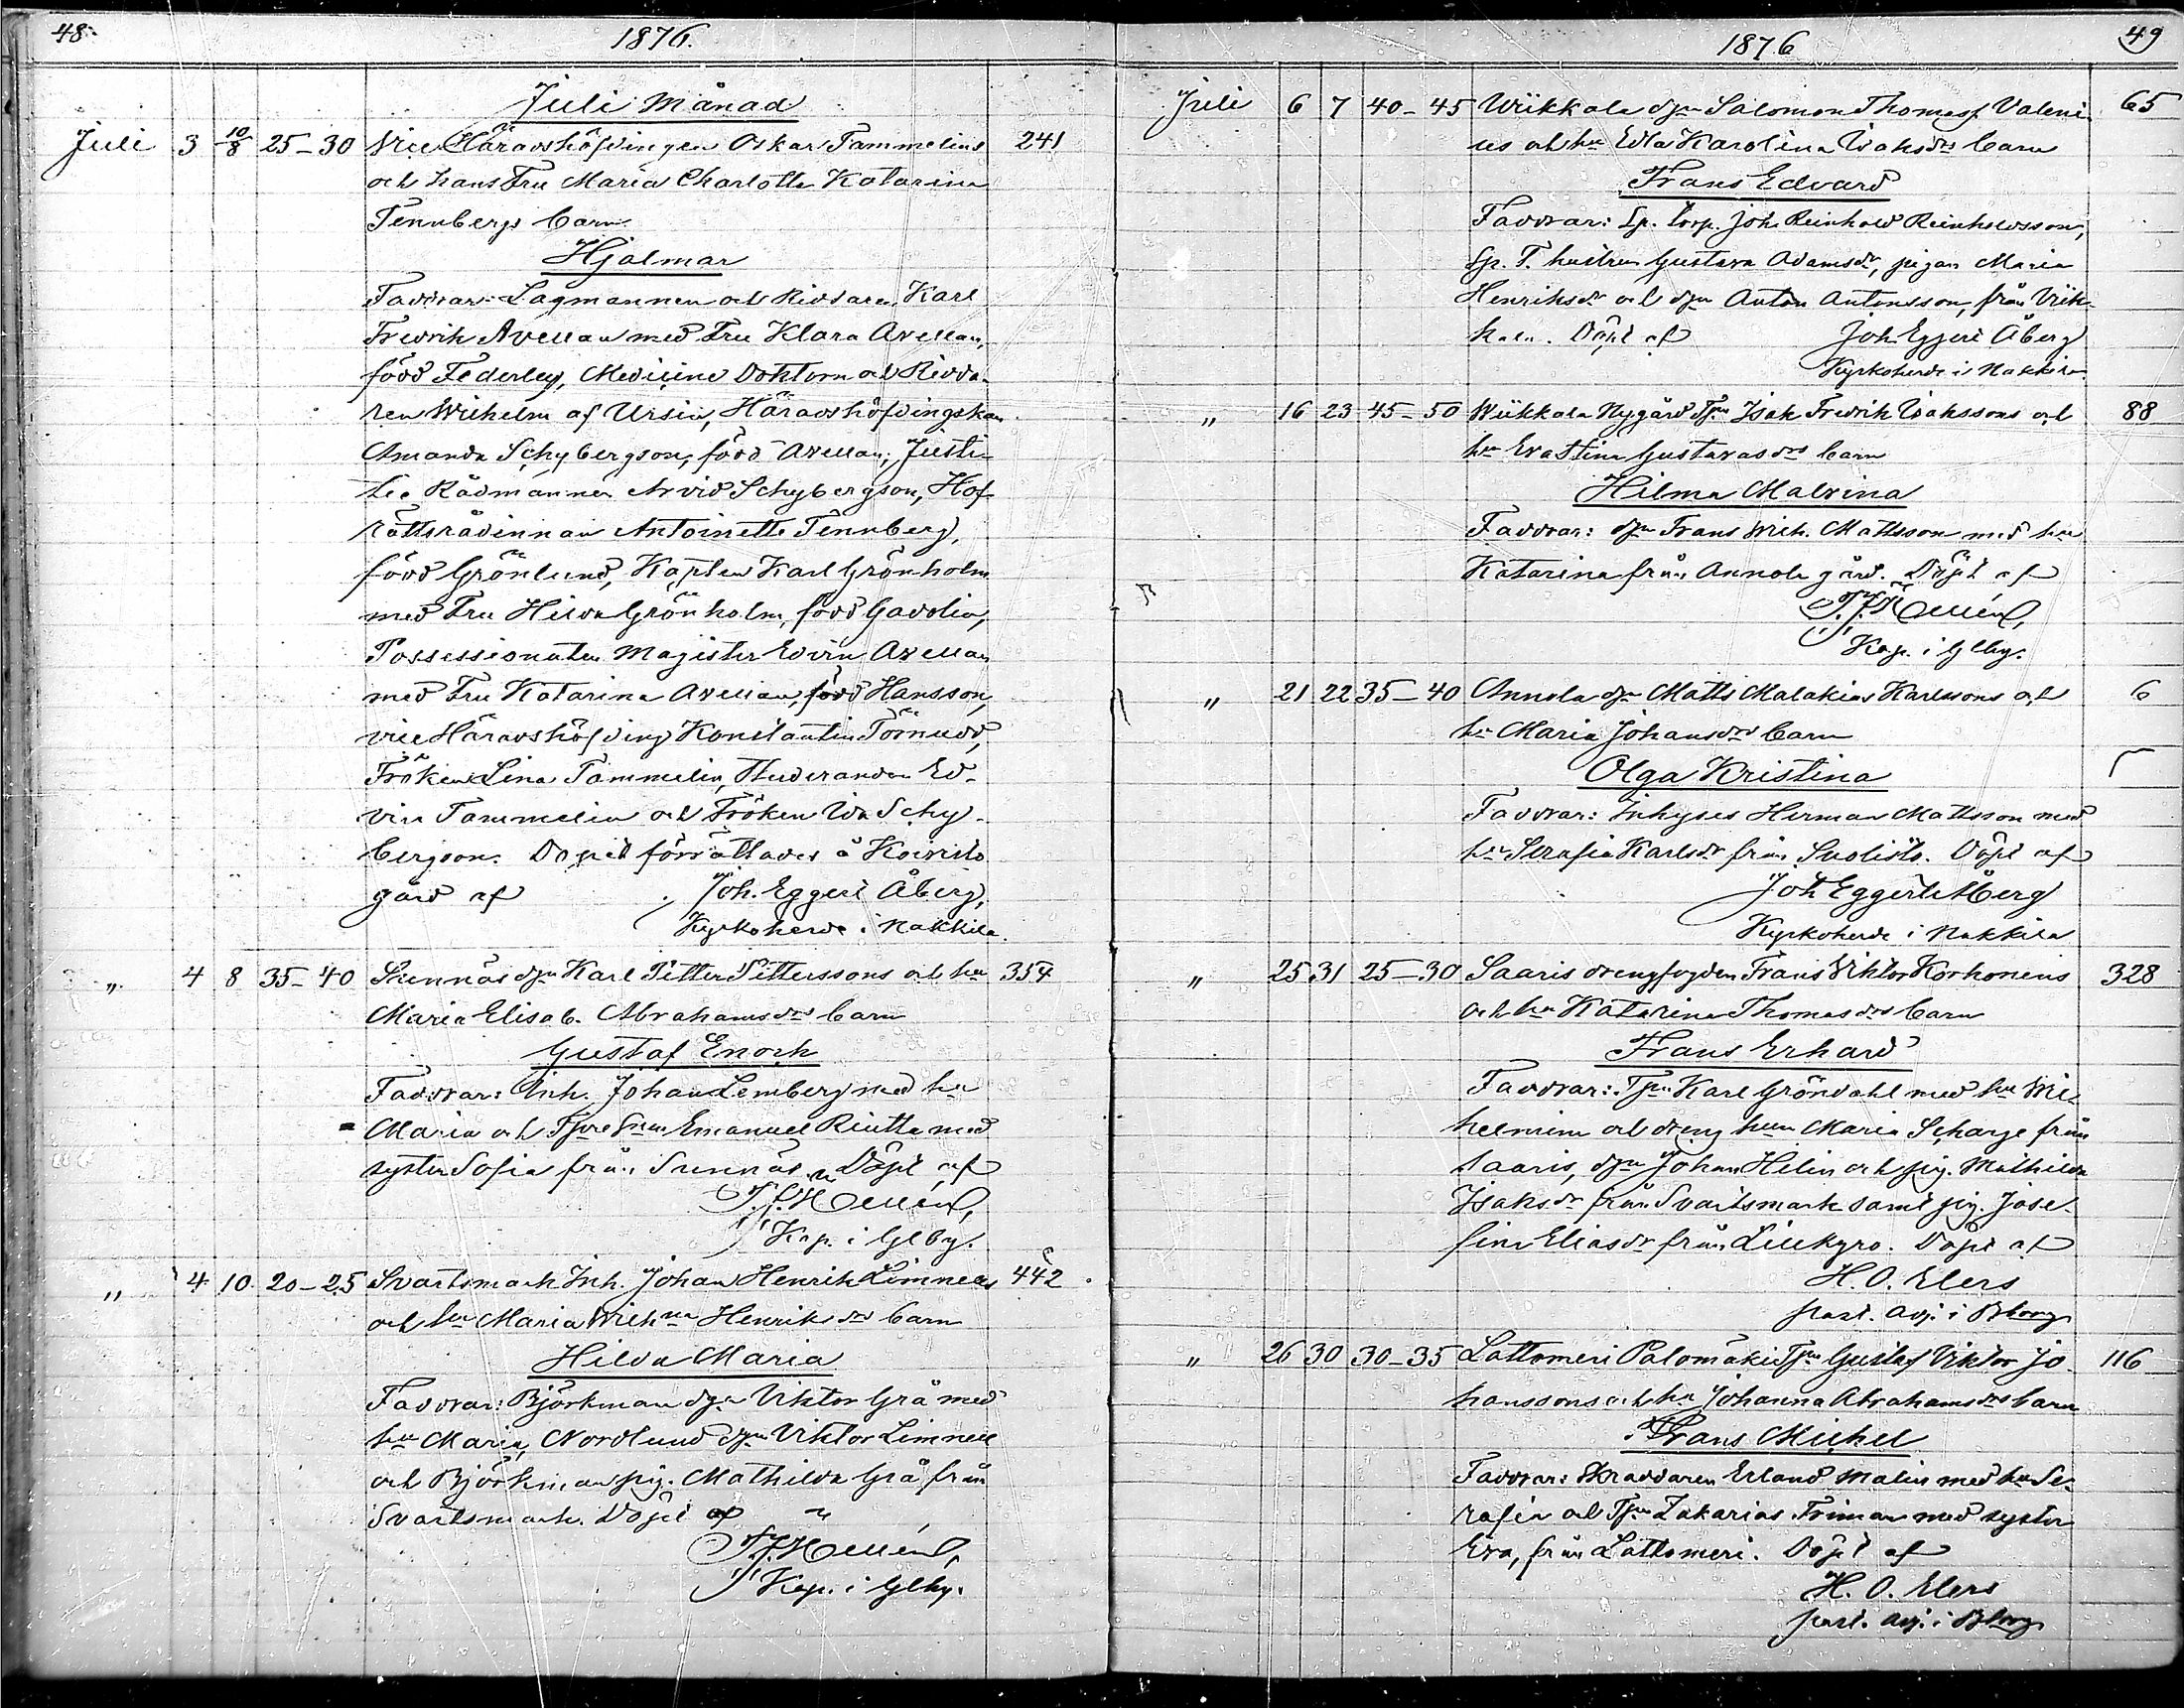 48.
1876.
Juli Månad
Juli 3 10/8 25-30 Vice Häradshöfdingen Oskar Tammelins 241
och hans Fru Maria Charlotta Katarina
Tennbergs barn
Hjalmar
Faddrar: Lagmannen och Riddaren Karl
Fredrik Avellan med Fru Klara Avellan,
född Federley, Medicine Doktorn och Ridda-
ren Wilhelm af Ursin, Häradshöfdingskan
Amanda Schybergson, född Avellan, Justi-
tie Rådmannen Arvid Schybergson, Hof-
rättsrådinnan Antoinette Tennberg,
född Grönlund, Kapten Karl Grönholm
med Fru Hilda Grönholm, född Gadolin,
Possessionaten Magister Edvin Avellan
med Fru Katarina Avellan, född Hansson,
vice Häradshöfding Konstantin Törnudd,
Fröken Lina Tammelin, Studeranden Ed-
vin Tammelin och Fröken Ida Schy-
bergson. Dopet förrättades å Koivisto
gård af Joh. Eggert Åberg,
Kyrkoherde i Nakkila.
" 4 8 35-40 Sunnäs dgn Karl Petter Petterssons och hu 354
Maria Elisab. Abrahamsdrs barn
Gustaf Enoch
Faddrar: Inh. Johan Lemberg med hu
Maria och Emanuel Riutta med
syster Sofia från Sunnäs. Döpt af
Kap. i Glby.
" 4 10 20-25 Svartsmark Inh. Johan Henrik Limnells 442
och hu Maria Wilhna Henriksdrs barn
Hilda Maria
Faddrar: Björkman dgn Viktor Grå med
hu Maria, Nordlund dgn Viktor Limnell
och Björkman pig. Mathilda Grå från
Svartsmark. Döpt af
Kap. i Glby.
1876
49
Juli 6 7 40-45 Wiikkala dgn Salomon Thomass. Valeni- 65
us och hu Edla Karolina Isaksdrs barn
Frans Edvard
Faddrar: Sp. torp. Joh. Reinhold Reinholdsson,
Sp. T. hustrun Gustava Adamsdr, pigan Maria
Henriksdr och dgn Anton Antonsson, från Viik-
kala. Döpt af Joh Eggert Åberg
Kyrkoherde i Nakkila.
" 16 23 45-50 Wiikkala Nygård Tpn Isak Fredrik Isakssons och 88
hu Eva Stina Gustavasdrs barn
Hilma Malvina
Faddrar: dgn Frans Wilh. Mattsson med hu
Katarina från Annola gård. Döpt af
Kap. i Glby.
" 21 22 35-40 Annola dgn Matts Malakias Karlssons och 6
hu Maria Johansdrs barn
Olga Kristina
Faddrar: Inhyses Herman Mattsson med
hu Serafia Karlsdr från Suolisto. Döpt af
Joh Eggert Åberg
Kyrkoherde i Nakkila
" 25 31 25-30 Saaris drengfogden Frans Viktor Korhonens 328
och hu Katarina Thomasdrs barn
Frans Erhard
Faddrar: Tpn Karl Gröndahl med hu Wil-
helmina och dreng hun Maria Scharge från
Saaris, dgn Johan Helin och pig. Mathilda
Isaksdr från Svartsmark samt pig. Jose-
fina Eliasdr från Lillkyro. Döpt af
H. O. Elers
past. adj. i Bborg
" 26 30 30-35 Lattomeri Palomäki Tpn Gustaf Viktor Jo- 116
hanssons och hu Johanna Abrahamsdrs barn
Frans Mickel
Faddrar: Skraddaren Erland Malin med hu Se-
rafia och Tpn Zakarias Friman med syster
Eva, från Lattomeri. Döpt af
H. O. Elers
past. adj. i Bborg